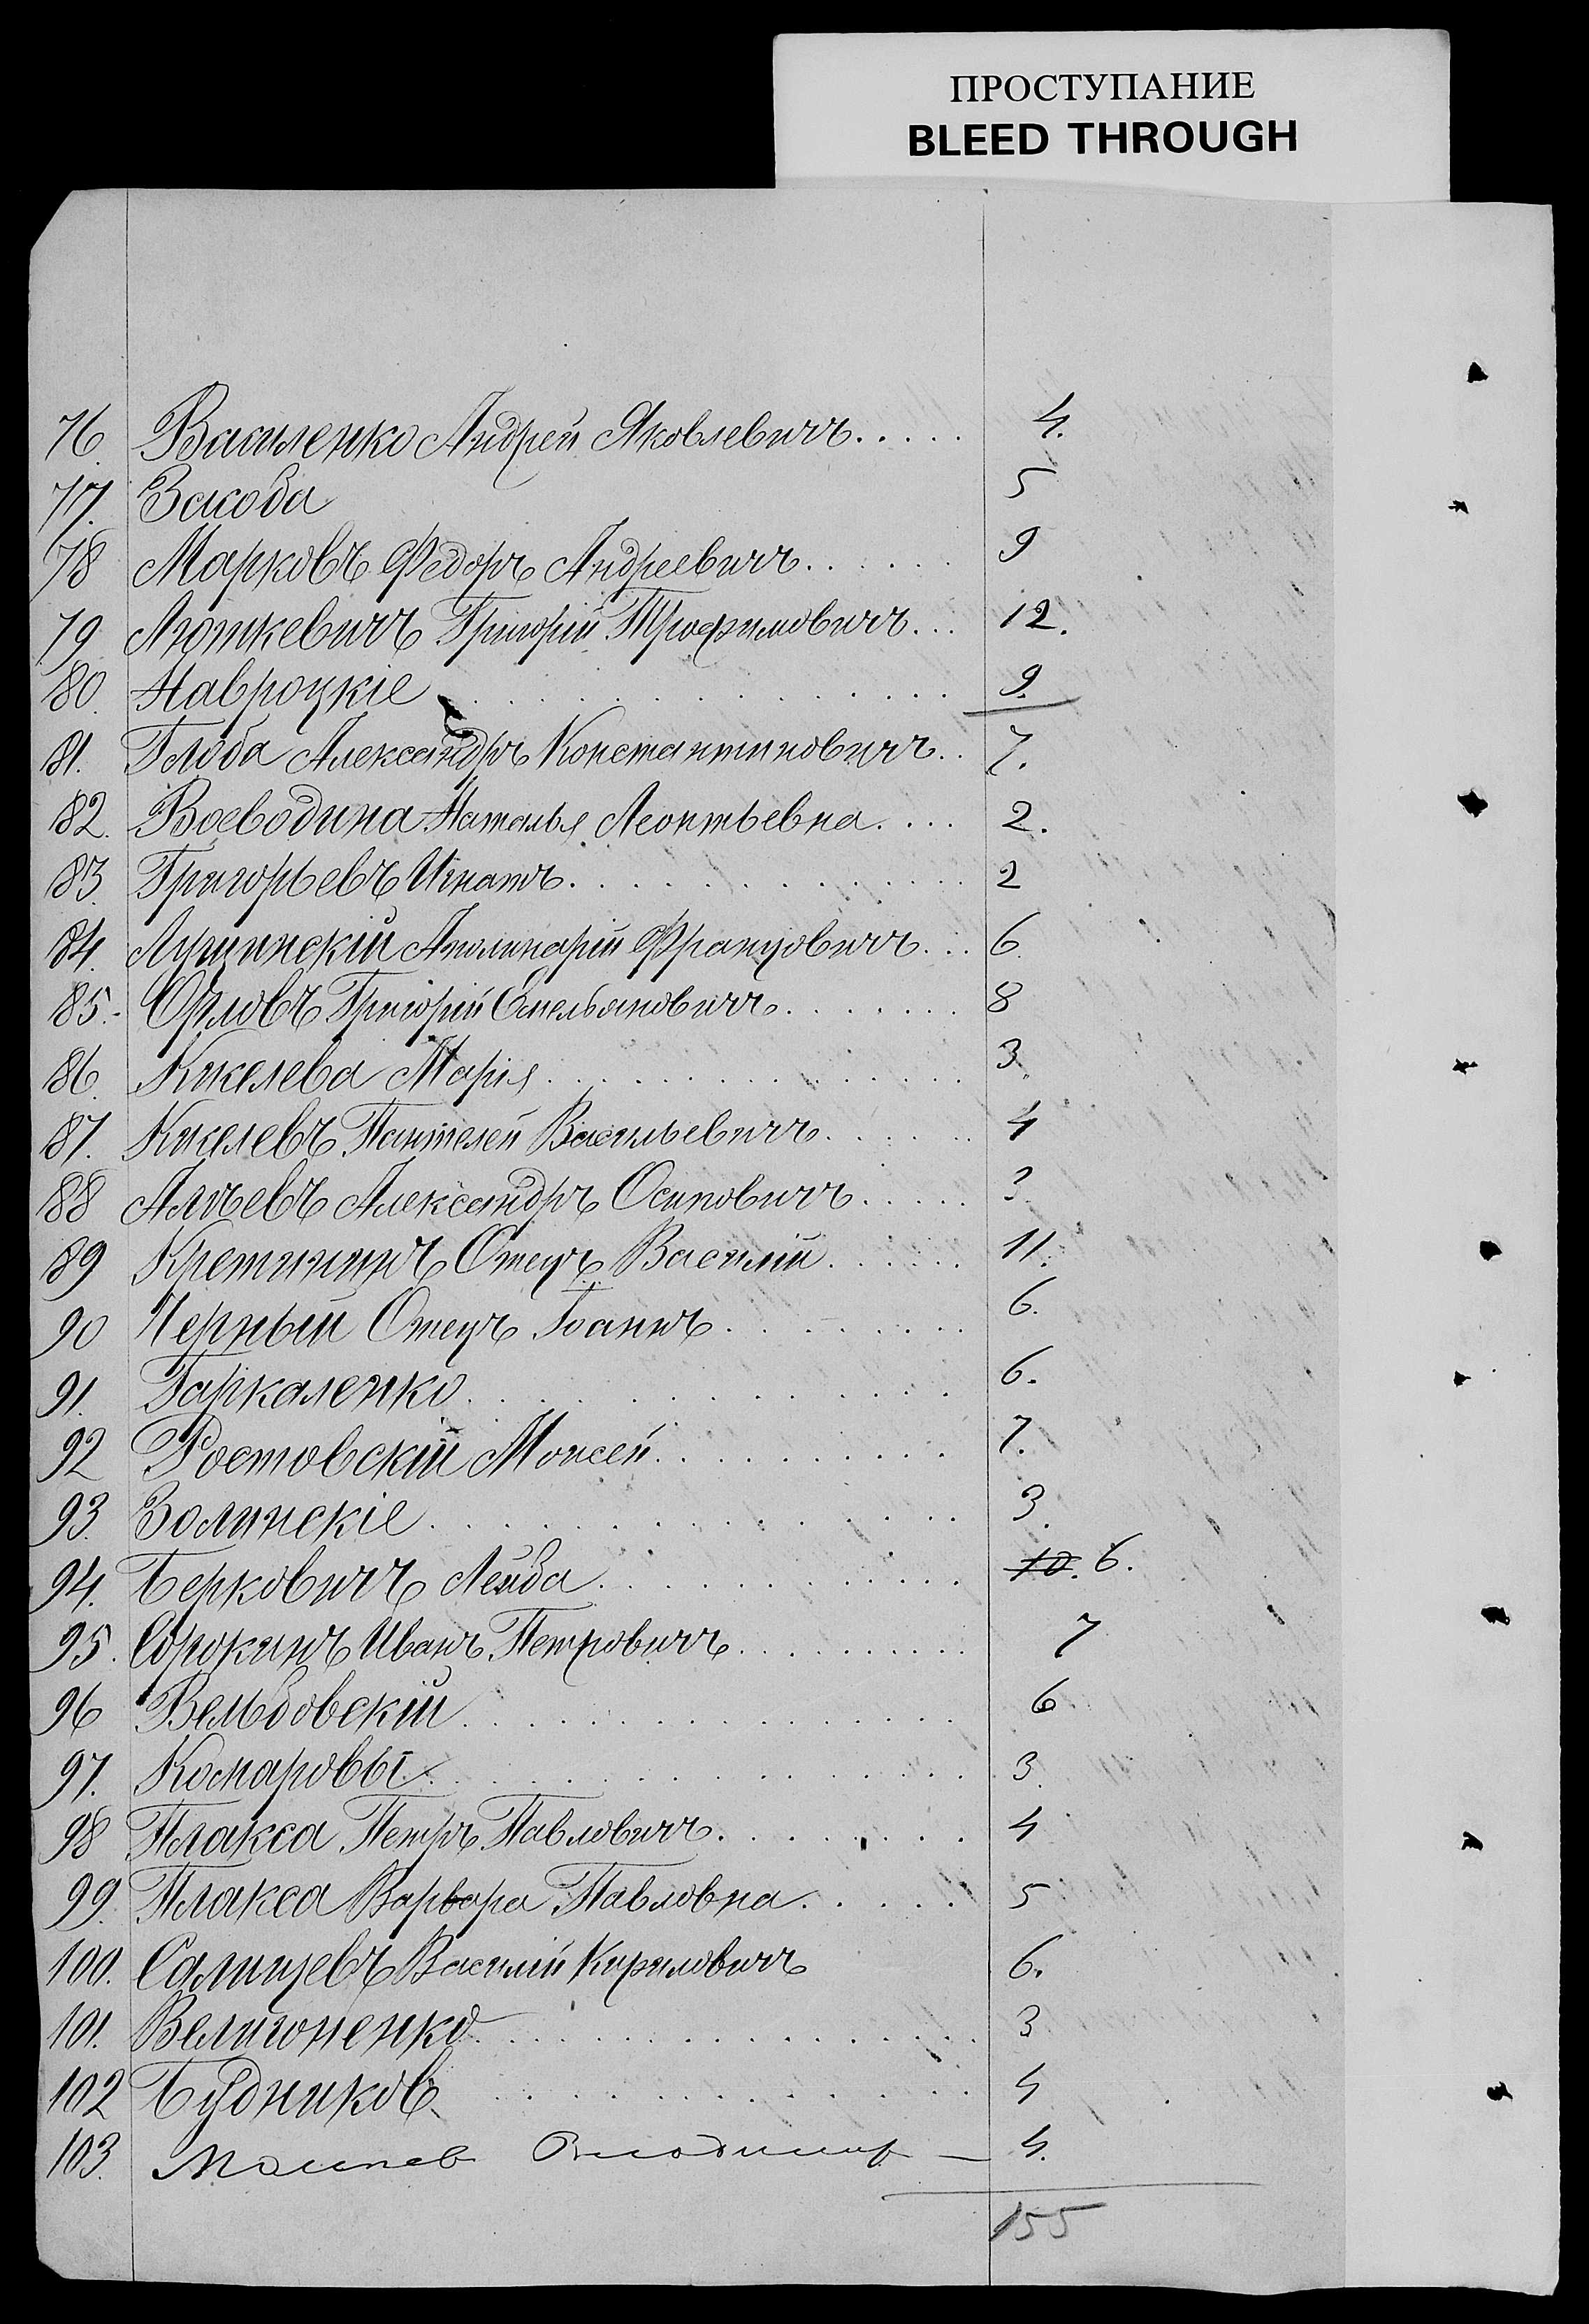 ПРОСТУПАНИЕ
BLEED THROUGH
76. Василенко Андрей Яковлевичъ..... 4.
77. Закоба 5
78 Марковъ Федоръ Андреевичъ...... 9
79 Люткевичъ Григорій Трофимовичъ... 12.
80. Навроцкіе 9.
81. Глоба Александръ Константиновичъ.. 7.
82. Воеводина Наталья Леонтьевна.... 2.
83. Григорьевъ Игнатъ. 2
84. Лущинскій Аполинарій Францовичъ... 6.
85.- Орловъ Григорій Емельяновичъ....... 8
86. Кикелева Марія 3.
87. Кикелевъ Пантелей Васильевичъ...... 4
88 Алѣевъ Александръ Осиповичъ..... 3.
89 Кретининъ Отецъ Василій...... 11.
90 Черный Отецъ Іоаннъ......... 6.
91. Гаркаленко 6.
92 Ростовскій Моисей.......... 7.
93. Золинскіе 3.
94. Берковичъ Лейба 10. 6.
95. Сорокинъ Иванъ Петровичъ......... 7
96 Вельбовскій 6
97. Комаровы 3.
98 Плакса Петръ Павловичъ......... 4
99. Плакса Варвара Павловна..... 5
100. Салищевъ Василій Кириловичъ 6.
101. Велигоненко 3
102 Будников 4
103. Владимир — 4.
155